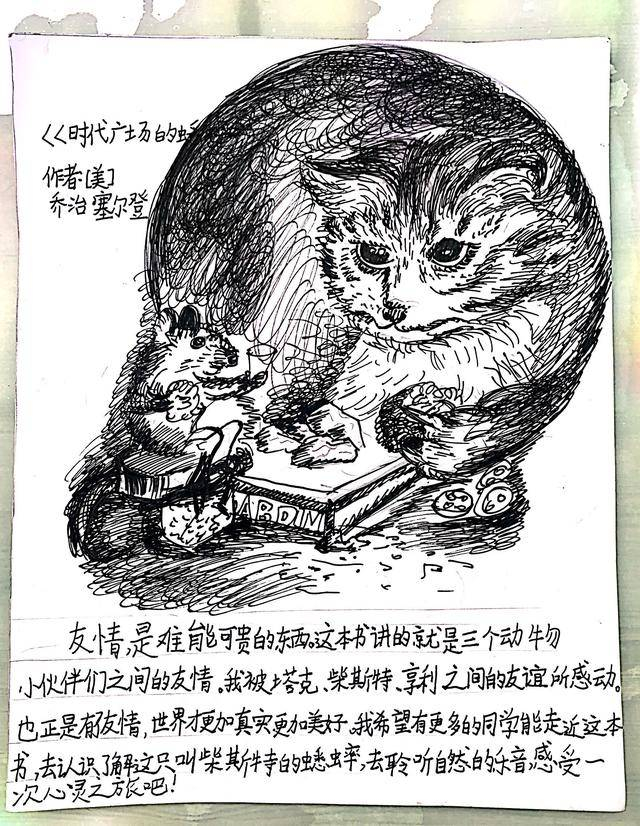 《时代广场的蟋
作者:[美]
乔治塞尔登
ABDM
友情,是难能可贵的东西。这本书讲的就是三个动物
小伙伴们之间的友情。我被塔克、柴斯特、亨利之间的友谊所感动。
也正是有友情,世界才更加真实更加美好。我希望有更多的同学能走近这本
书,去认识了解这只叫柴斯特的蟋蟀,去聆听自然的乐音,感受一
次心灵之旅吧!